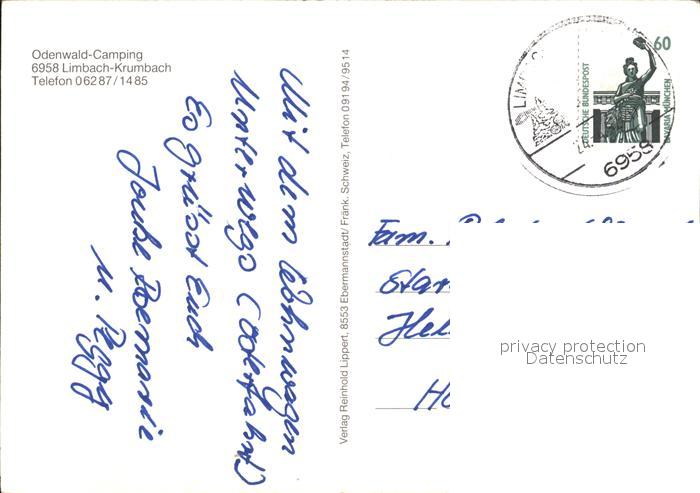 Odenwald-Camping
6958 Limbach-Krumbach
Telefon 06287/1485
Mit dem Wohnwagen
Unterwegs (Osterfahrt)
Es grüsst Euch
Rosemarie
u. Peggy
Verlag Reinhold Lippert, 8553 Ebermannstadt/Fränk. Schweiz, Telefon 09194/9514
LIMB
6958
60
DEUTSCHE BUNDESPOST
BAVARIA MÜNCHEN
Fam.
privacy protection
Datenschutz